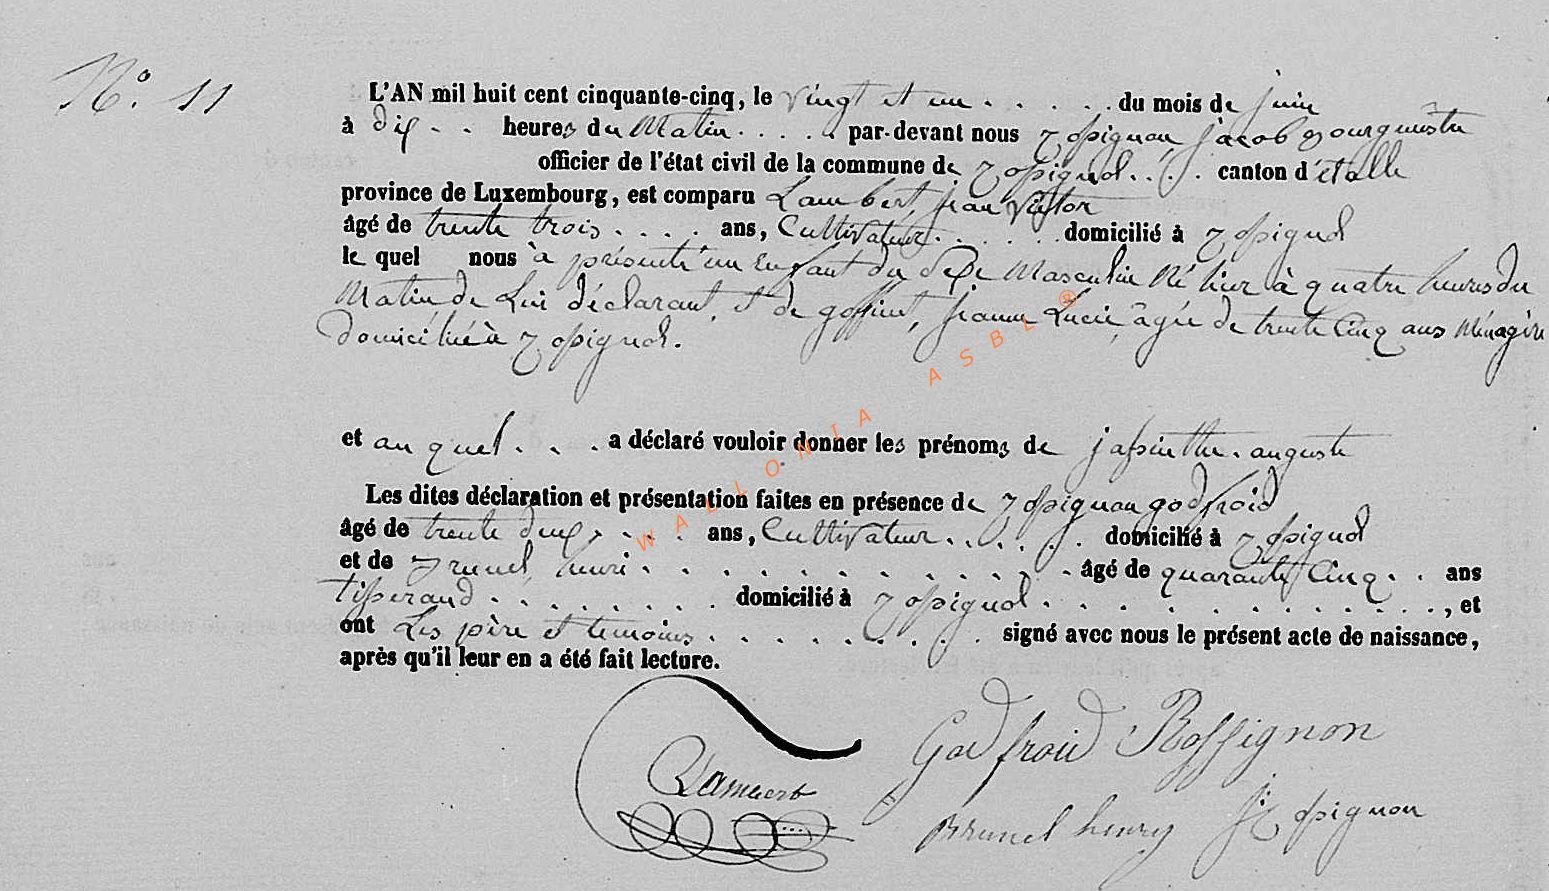 N°. 11
L'AN mil huit cent cinquante-cinq, le vingt et un . . . . . du mois de juin
à dix . . heures du Matin . . . . . par-devant nous Rossignon, jacob Bourguemestre
officier de l'état civil de la commune de Rossignol . . . . canton d'étalle
province de Luxembourg, est comparu Lambert, jean Victor
âgé de trente trois . . . . ans, Cultivateur . . . . . . domicilié à Rossignol
le quel nous à présenté un Enfant du Sexe Masculin Né hier à quatre heures du
Matin de Lui déclarant, et de goffinet, jeanne Lucie, âgée de trente Cinq ans Ménagère
domiciliée à Rossignol.
et au quel . . . a déclaré vouloir donner les prénoms de jassinthe. auguste
Les dites déclaration et présentation faites en présence de Rossignon godfroid
âgé de trente deux . . . . ans, Cultivateur . . . . . . domicilié à Rossignol
et de Brunel, henri . . . . . . . . . . . . . âgé de quarante Cinq . . ans
Tisserand . . . . . . . . domicilié à Rossignol . . . . . . . . . . . . . ., et
ont Les père et témoins . . . . . . . . signé avec nous le présent acte de naissance,
après qu'il leur en a été fait lecture.
Godfroid Rossignon
Lambert
Brunel henry J Rossignon
WALLONIA ASBL ®